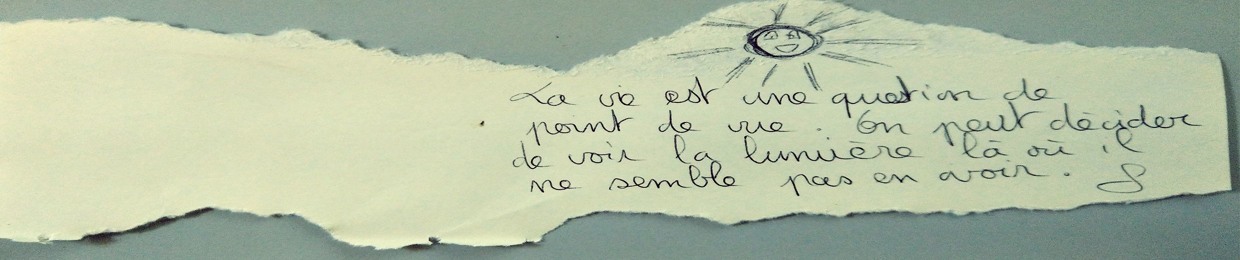 La vie est une question de
point de vue. On peut décider
de voir la lumière là où il
ne semble pas en avoir. S